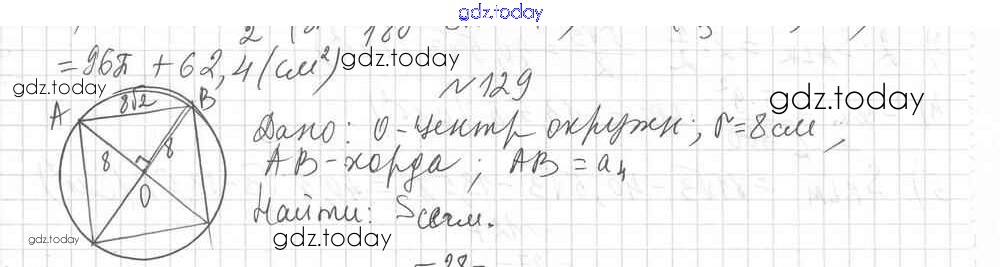 gdz.today
= 96π + 62,4 (см²) gdz.today
gdz.today
№129
gdz.today
A 8√2 B
Дано: O-центр окружн.; r=8см,
8 8
AB-хорда; AB = a₄
O
Найти: Sсегм.
gdz.today
gdz.today